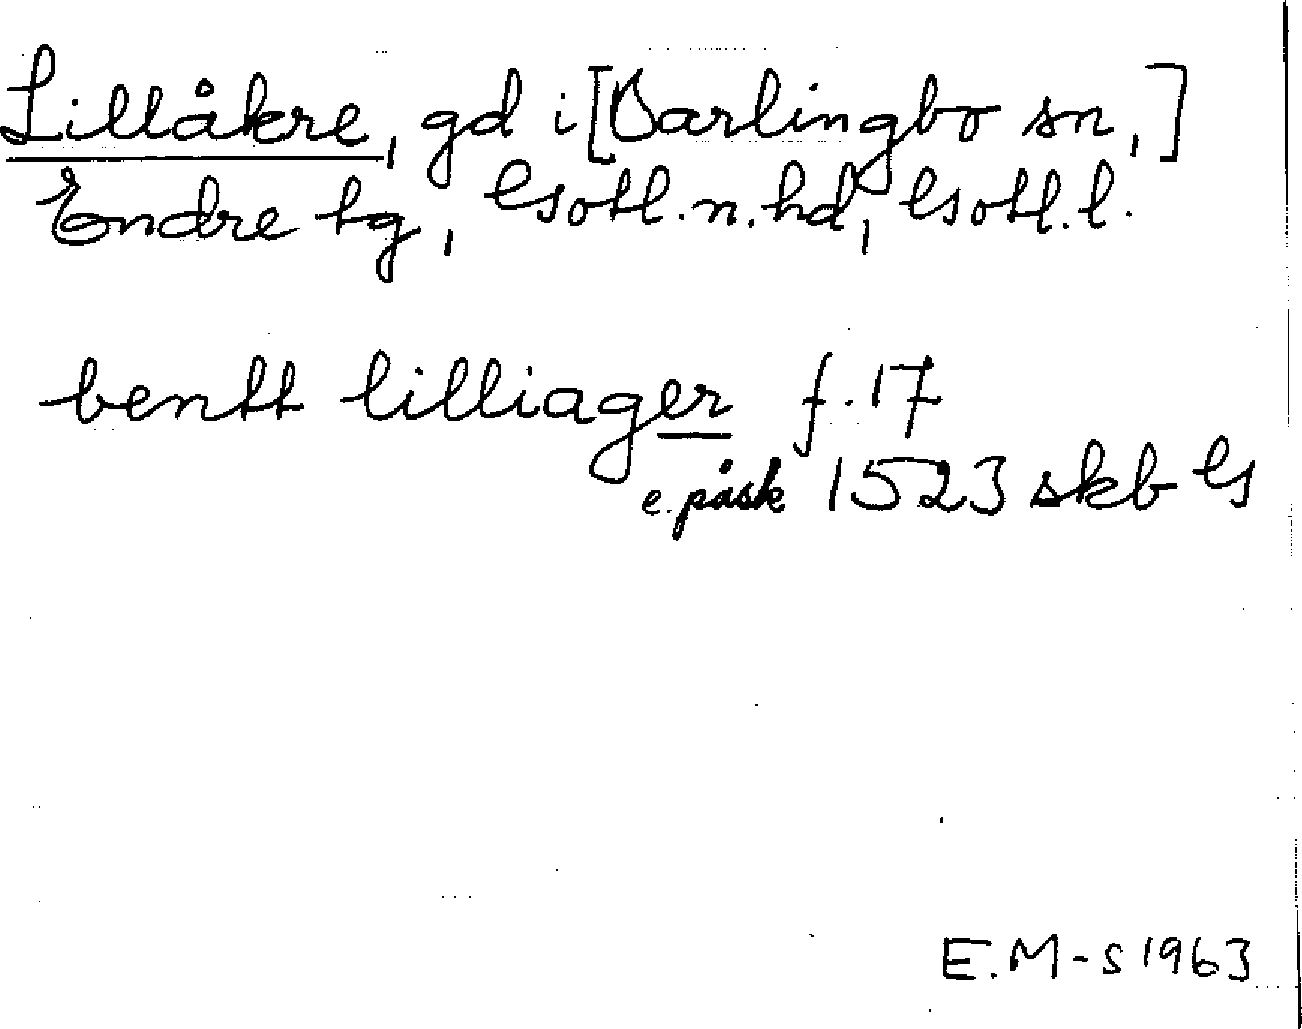 Lillåkre, gd i [Barlingbo sn,]
Endre tg, Gotl. n. hd, Gotl. l.
bentt lilliager f. 17
e. påsk 1523 skb G
E.M-s 1963